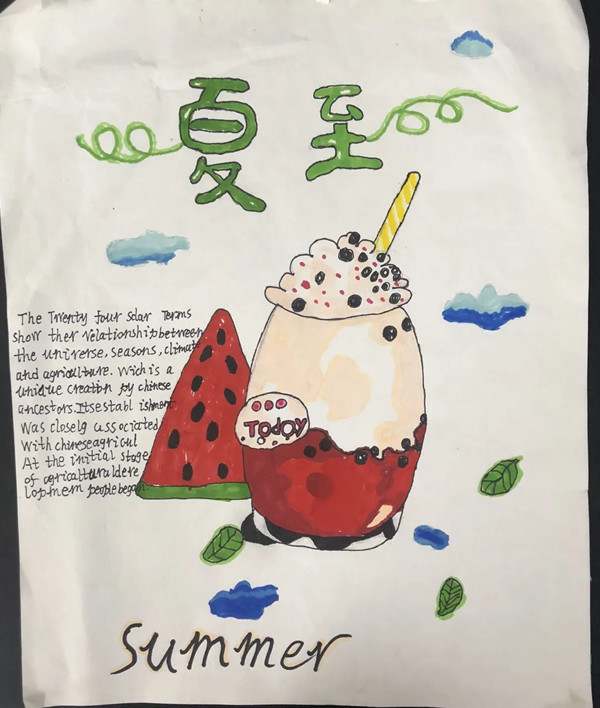 夏至
The Twenty four solar Terms
show ther relationship between
the universe, seasons, climate
and agriculture. Wich is a
unique creation by chinese
ancestors. Itsestabl ishment
was closely associated
With chineseagricul
At the initial stage
of agriculturaldere
lopmem people began
Today
Summer